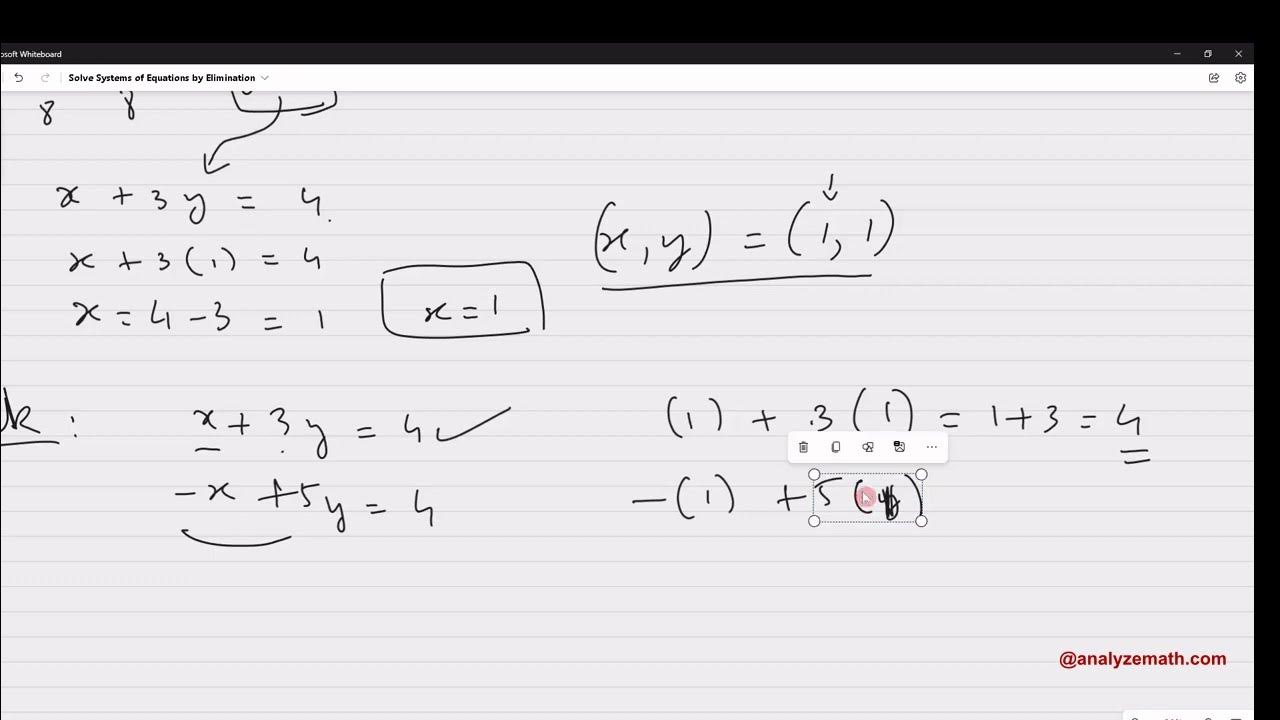 osoft Whiteboard
Solve Systems of Equations by Elimination
8 8
x + 3y = 4.
x + 3(1) = 4
x = 4 - 3 = 1
x = 1
(x, y) = (1, 1)
k :
x + 3y = 4 ✓
(1) + 3(1) = 1 + 3 = 4
-x + 5y = 4
-(1) + 5(
@analyzemath.com